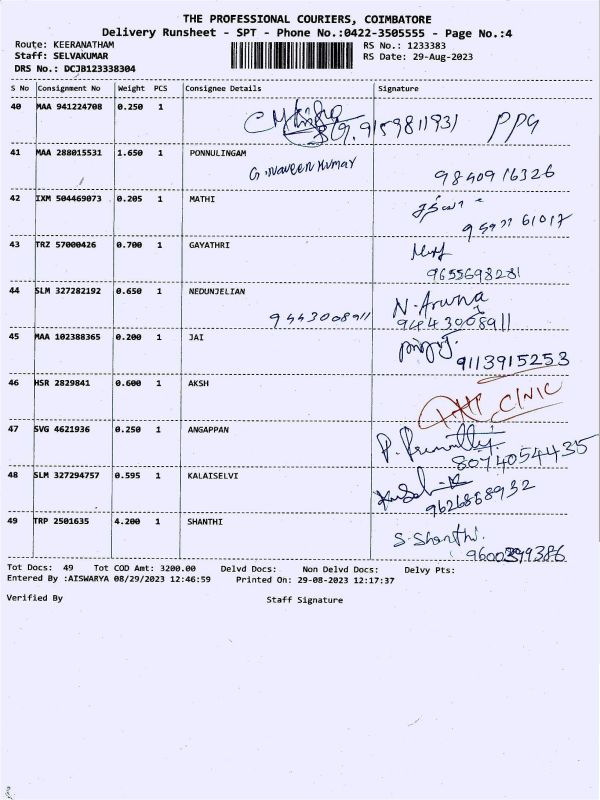 THE PROFESSIONAL COURIERS, COIMBATORE
Delivery Runsheet - SPT - Phone No.:0422-3505555 - Page No.:4
Route: KEERANATHAM RS No.: 1233383
Staff: SELVAKUMAR RS Date: 29-Aug-2023
DRS No.: DCJB123338304
S No Consignment No Weight PCS Consignee Details Signature
40 MAA 941224708 0.250 1
9159811931 PPG
41 MAA 288015531 1.650 1 PONNULINGAM
G.Naveen Kumar 9840916326
42 IXM 504469073 0.205 1 MATHI
43 TRZ 57000426 0.700 1 GAYATHRI
9655698281
44 SLM 327282192 0.650 1 NEDUNJELIAN N.Aruna
9443008911 9443008911
45 MAA 102388365 0.200 1 JAI
9113915253
46 HSR 2829841 0.600 1 AKSH
CLINIC
47 SVG 4621936 0.250 1 ANGAPPAN
8074054435
48 SLM 327294757 0.595 1 KALAISELVI
9626868932
49 TRP 2501635 4.200 1 SHANTHI
S.Shanthi.
Tot Docs: 49 Tot COD Amt: 3200.00 Delvd Docs: Non Delvd Docs: Delvy Pts:
Entered By :AISWARYA 08/29/2023 12:46:59 Printed On: 29-08-2023 12:17:37
Verified By Staff Signature